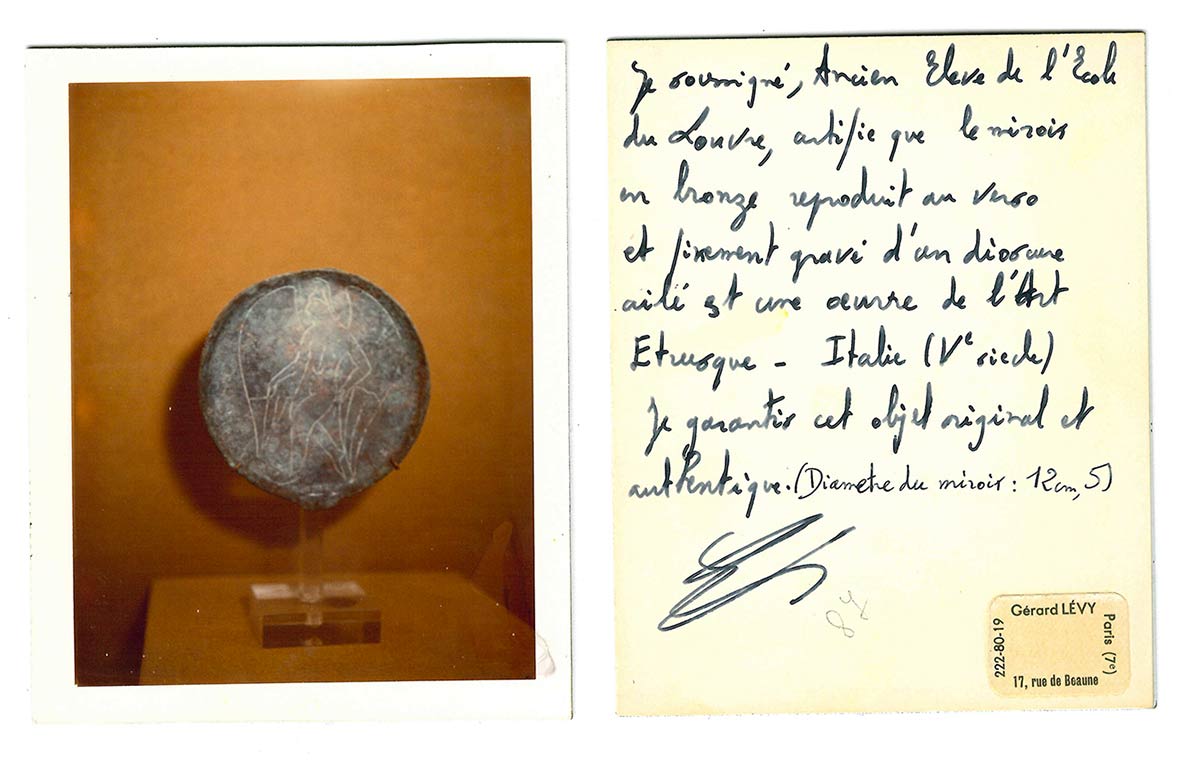 Je soussigné, Ancien Elève de l'Ecole
du Louvre, certifie que le miroir
en bronze reproduit au verso
et finement gravé d'un dioscure
ailé est une œuvre de l'Art
Etrusque - Italie (Ve siecle)
Je garantis cet objet original et
authentique. (Diametre du miroir : 12cm,5)
Gérard LÉVY
Paris (7e)
222-80-19
17, rue de Beaune